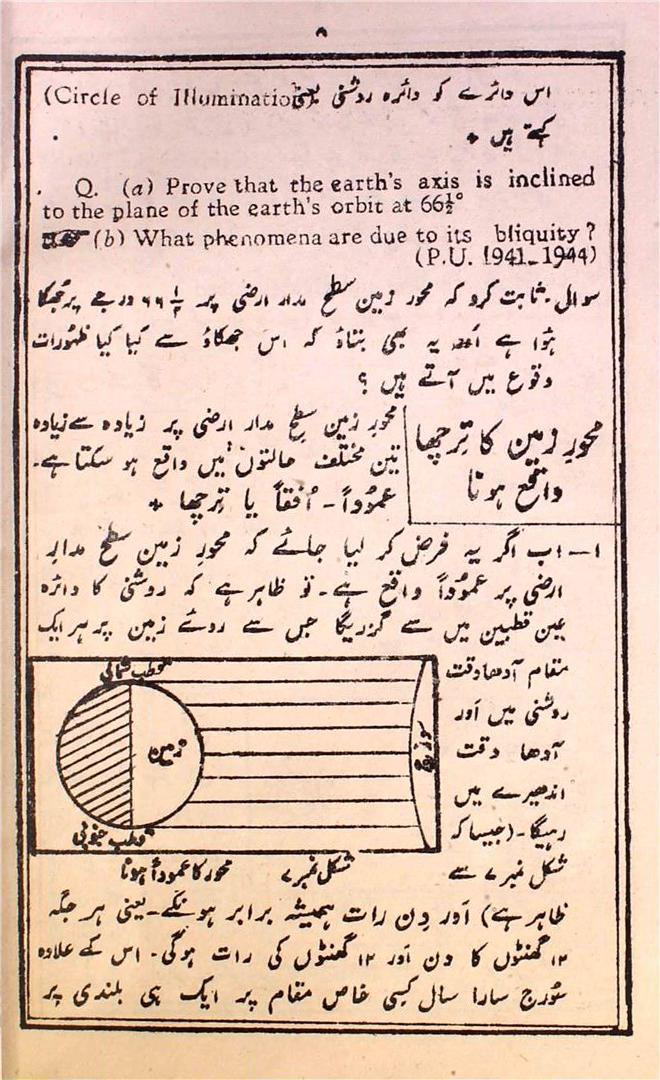 ۸
اس دائرے کو دائرہ روشنی یعنی (Circle of Illumination)
کہتے ہیں +
Q. (a) Prove that the earth's axis is inclined
to the plane of the earth's orbit at 66½°
(b) What phenomena are due to its bliquity?
(P.U. 1941-1944)
سوال۔ ثابت کرو کہ محور زمین سطح مدار ارضی پر ۶۶ ۱/۲ درجے پر جھکا
ہؤا ہے اور یہ بھی بتاؤ کہ اس جھکاؤ سے کیا کیا ظہورات
وقوع میں آتے ہیں ؟
محورِ زمین کا تِرچھا
واقع ہونا
محورِ زمین سطح مدار ارضی پر زیادہ سے زیادہ
تین مختلف حالتوں میں واقع ہو سکتا ہے۔
عموُداً۔ اُفقاً یا تِرچھا +
۱۔ اب اگر یہ فرض کر لیا جائے کہ محورِ زمین سطح مدارِ
ارضی پر عموُداً واقع ہے۔ تو ظاہر ہے کہ روشنی کا دائرہ
عین قطبین میں سے گزریگا جس سے روئے زمین پر ہر ایک
مقام آدھا وقت
روشنی میں اَور
آدھا وقت
اندھیرے میں
رہیگا۔ (جیسا کہ
شکل نمبر ۷ سے
قطب شمالی
زمین
سورج
قطب جنوبی
شکل نمبر ۷ محور کا عموداً ہونا
ظاہر ہے) اَور دِن رات ہمیشہ برابر ہونگے۔ یعنی ہر جگہ
۱۲ گھنٹوں کا دن اَور ۱۲ گھنٹوں کی رات ہوگی۔ اس کے علاوہ
سُورج سارا سال کِسی خاص مقام پر ایک ہی بلندی پر